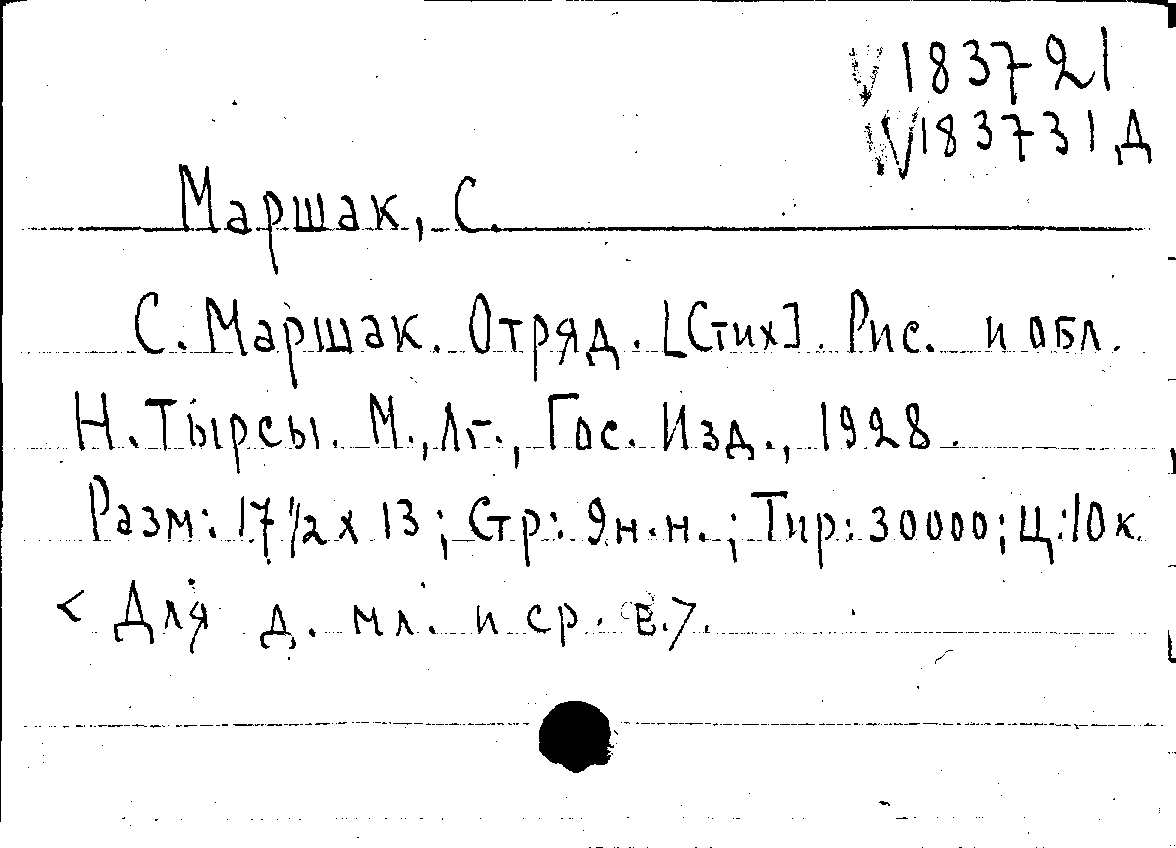 V 183721
W 183731 Д
Маршак, С.
С. Маршак. Отряд. [Стих]. Рис. и обл.
Н. Тырсы. М., Лг., Гос. Изд., 1928.
Разм: 17 1/2 х 13; Стр: 9 н.н.; Тир: 30000; Ц: 10 к.
< Для д. мл. и ср. в.>.